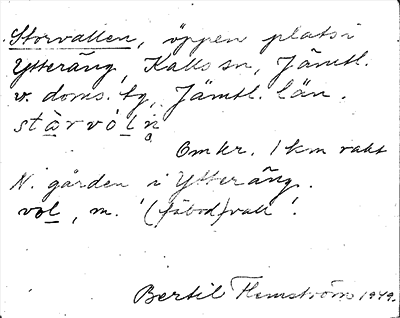 Storvallen, öppen plats i
Ytteräng, Kalls sn, Jämtl.
v. doms. tg, Jämtl. län.
stàrvòl̥n̥
Omkr. 1 km rakt
N. gården i Ytteräng.
vol, m. '(fäbod)vall'.
Bertil Flemström 1949.